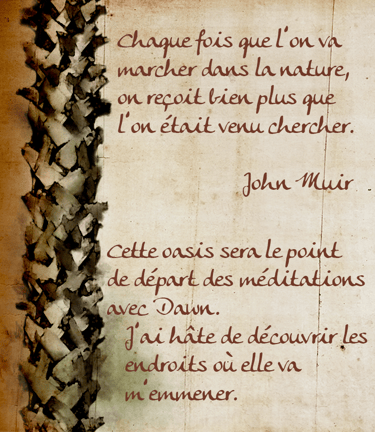 Chaque fois que l'on va
marcher dans la nature,
on reçoit bien plus que
l'on était venu chercher.
John Muir
Cette oasis sera le point
de départ des méditations
avec Dawn.
J'ai hâte de découvrir les
endroits où elle va
m'emmener.